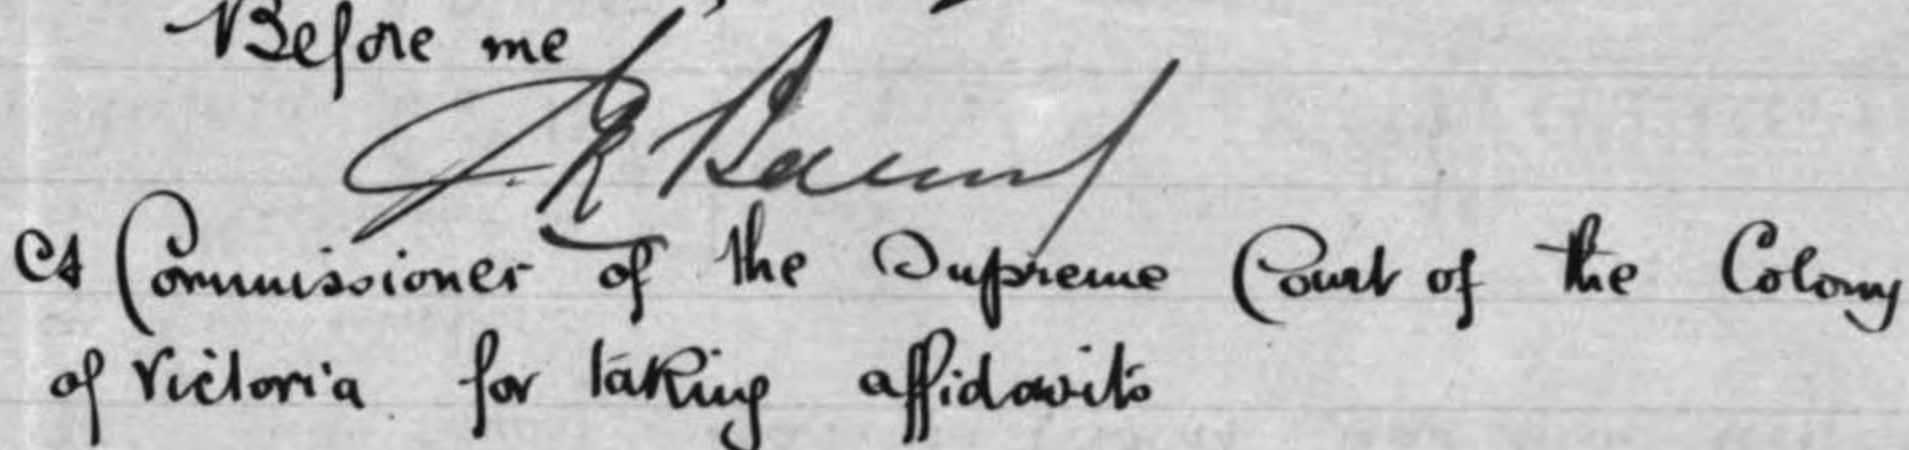 Before me
A Commissioner of the Supreme Court of the Colony
of Victoria for taking affidavits